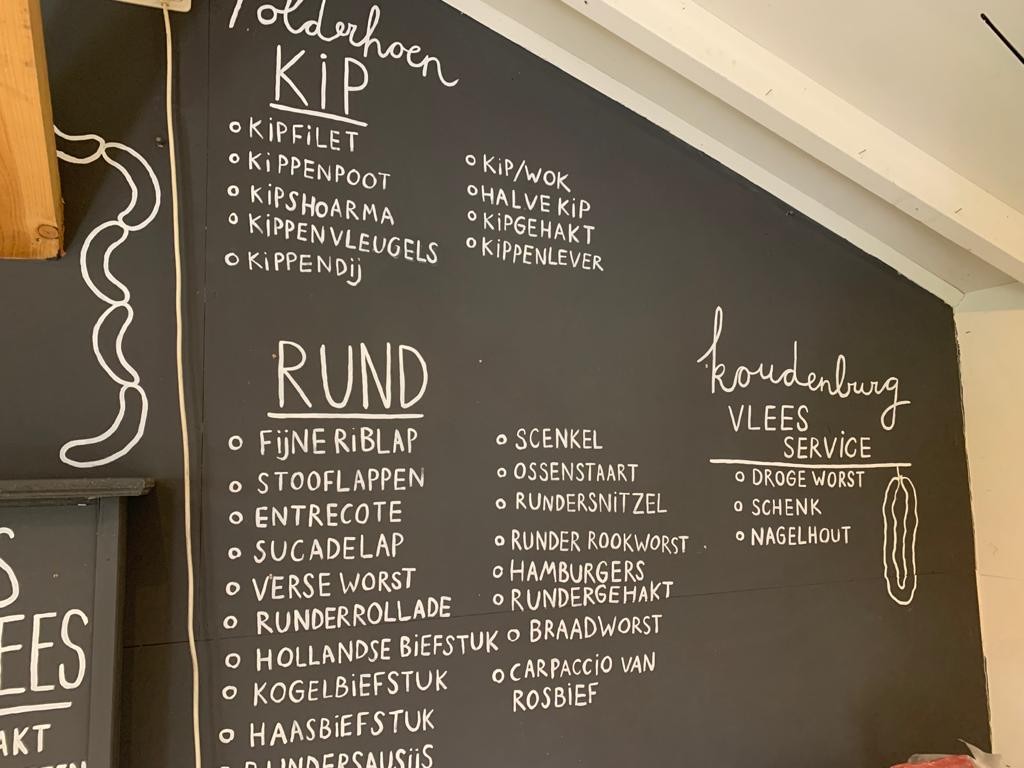 Polderhoen
KIP
KIPFILET
KIPPENPOOT
KIPSHOARMA
KIPPENVLEUGELS
KIPPENDIJ
KIP/WOK
HALVE KIP
KIPGEHAKT
KIPPENLEVER
RUND
FIJNE RIBLAP
STOOFLAPPEN
ENTRECOTE
SUCADELAP
VERSE WORST
RUNDERROLLADE
HOLLANDSE BIEFSTUK
KOGELBIEFSTUK
HAASBIEFSTUK
RUNDERSAUSIJS
SCENKEL
OSSENSTAART
RUNDERSNITZEL
RUNDER ROOKWORST
HAMBURGERS
RUNDERGEHAKT
BRAADWORST
CARPACCIO VAN
ROSBIEF
koudenburg
VLEES
SERVICE
DROGE WORST
SCHENK
NAGELHOUT
S
EES
AKT